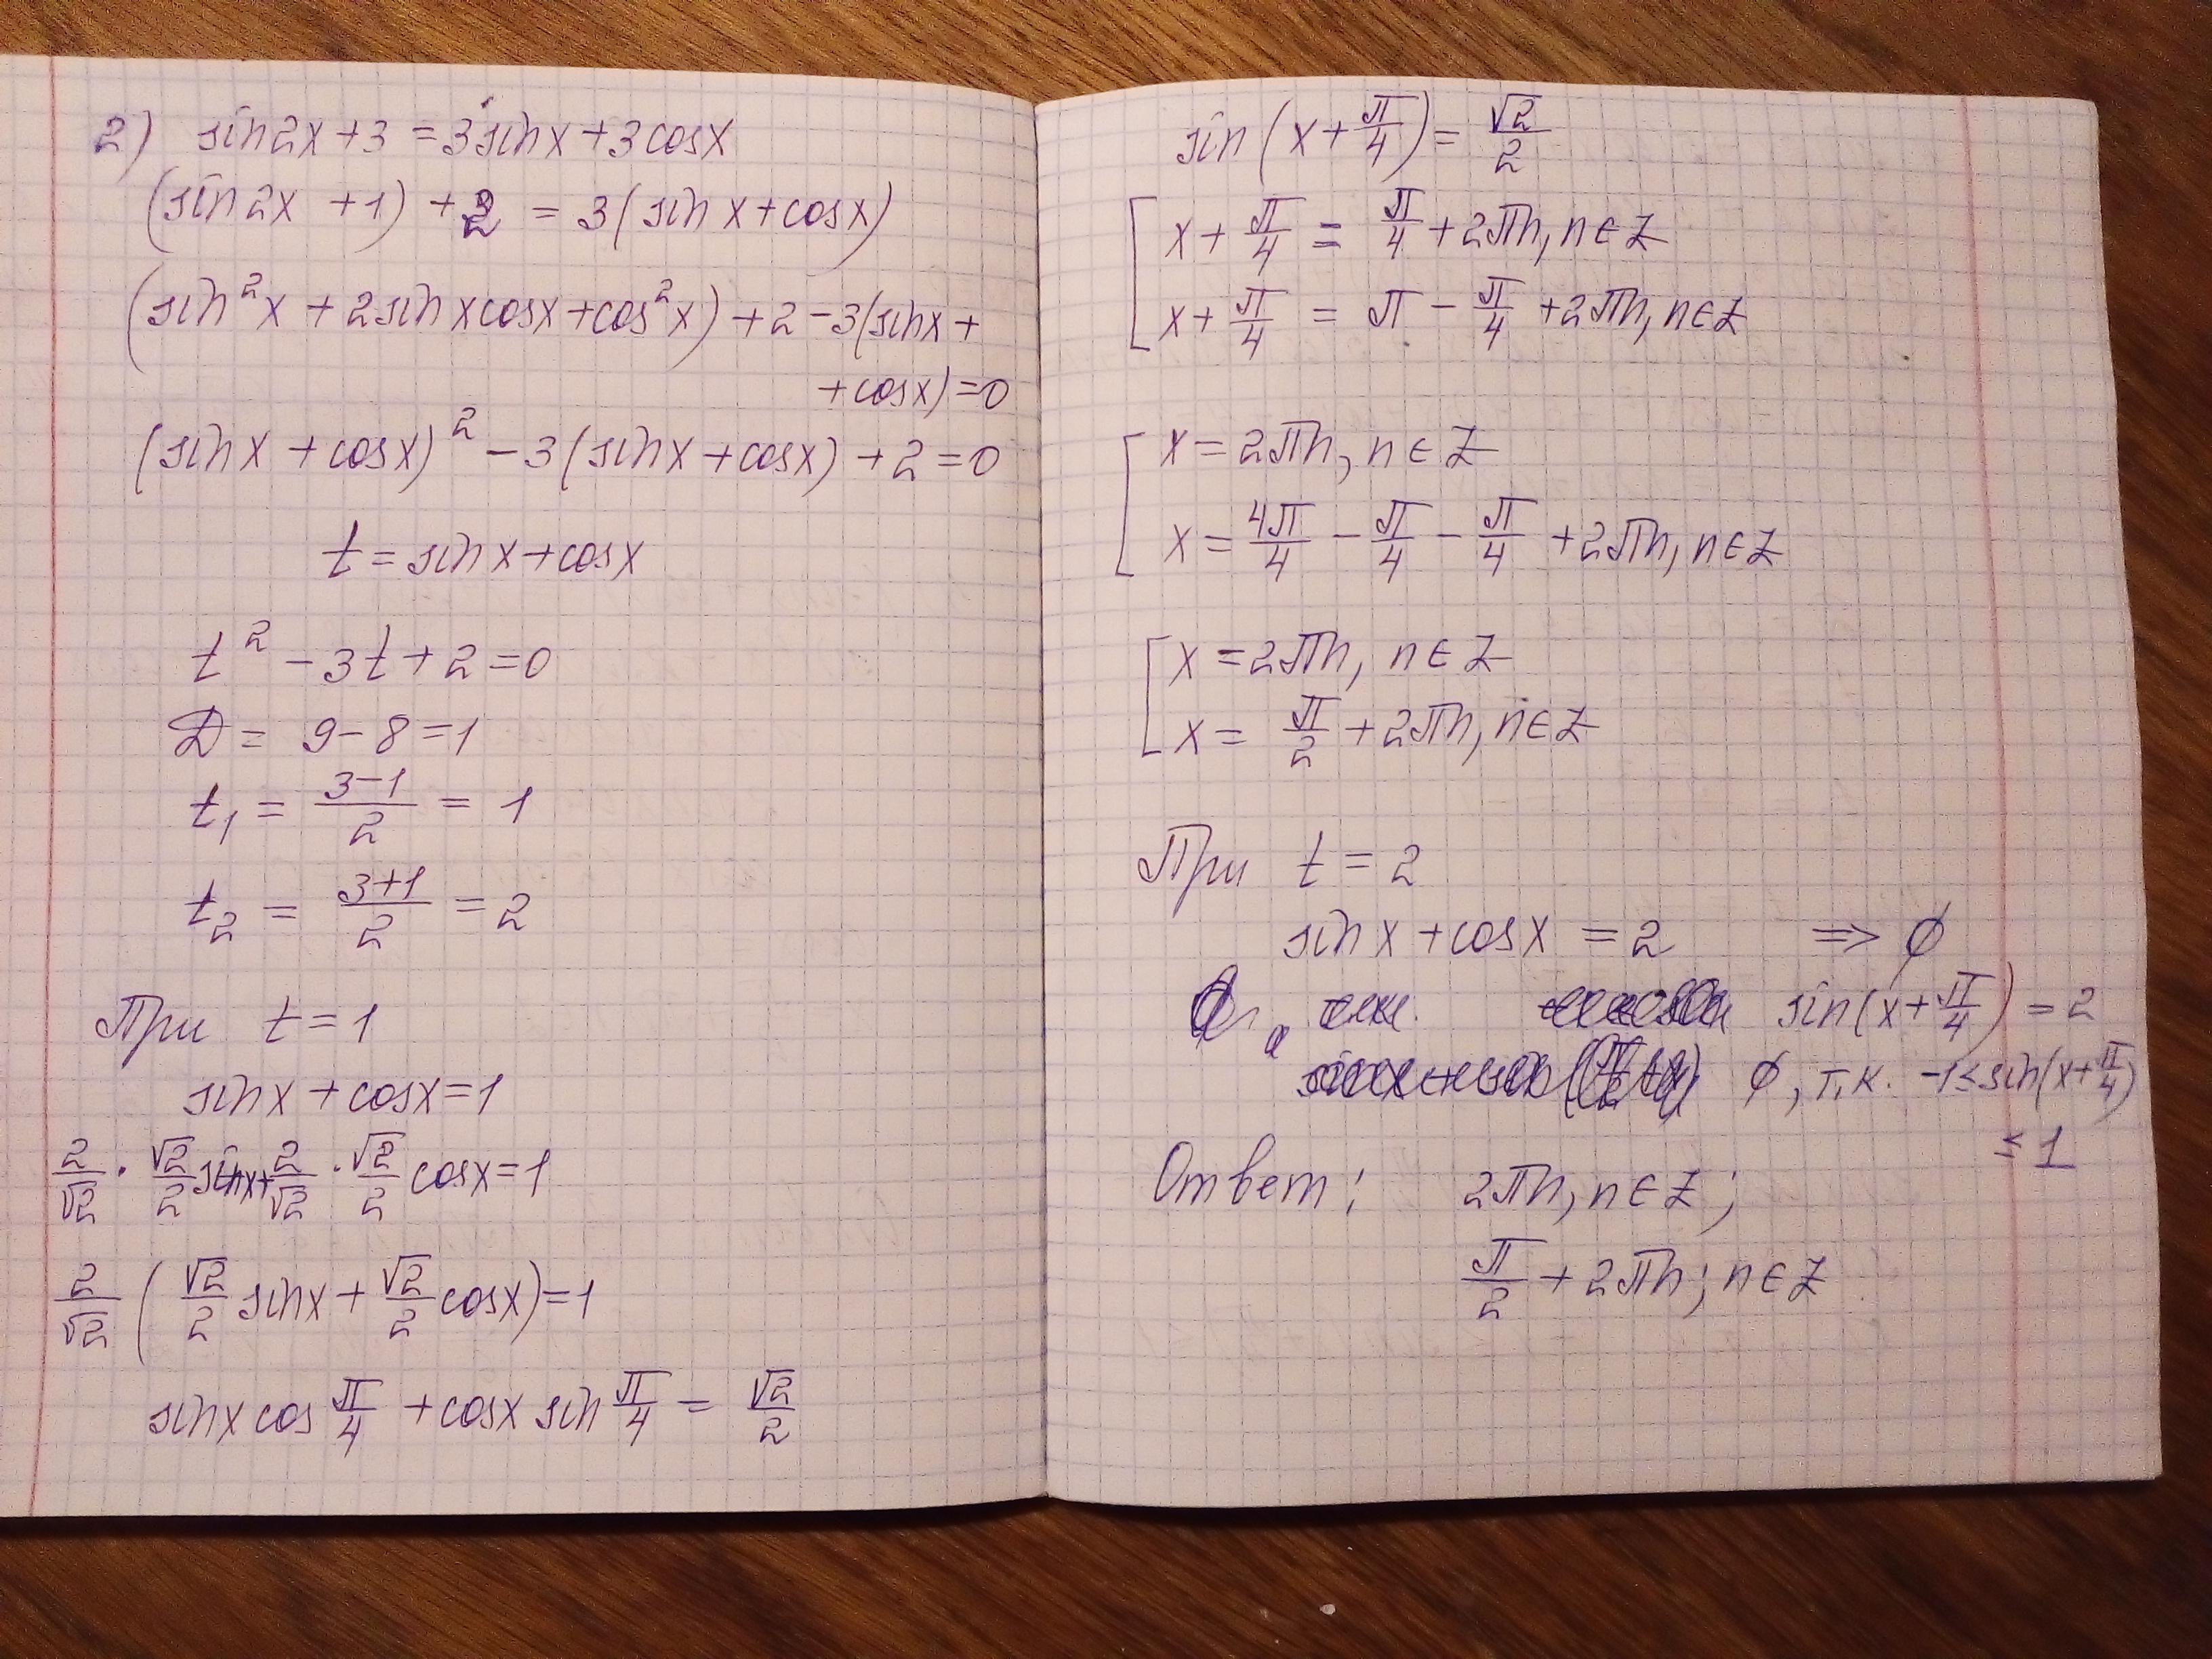 2) sin2x+3 = 3sinx+3cosx
(sin2x +1) +2 = 3(sinx+cosx)
(sin²x + 2sinxcosx+cos²x) + 2 -3(sinx+
+cosx)=0
(sinx +cosx)² -3(sinx+cosx) +2=0
t=sinx+cosx
t² -3t+2=0
D= 9-8=1
t₁ = (3-1)/2 = 1
t₂ = (3+1)/2 = 2
При t=1
sinx+cosx=1
2/√2 · √2/2 sinx+ 2/√2 · √2/2 cosx=1
2/√2 ( √2/2 sinx + √2/2 cosx)=1
sinx cos π/4 +cosx sin π/4 = √2/2
sin(x+π/4)= √2/2
[ x+ π/4 = π/4 +2πn, n∈Z
x+ π/4 = π - π/4 +2πn, n∈Z
[ x=2πn, n∈Z
x= 4π/4 - π/4 - π/4 +2πn, n∈Z
[ x=2πn, n∈Z
x= π/2 +2πn, n∈Z
При t=2
sinx+cosx =2 => ∅
sin(x+π/4) = 2
∅, т.к. -1≤sin(x+π/4)
≤1
Ответ: 2πn, n∈Z;
π/2 +2πn; n∈Z